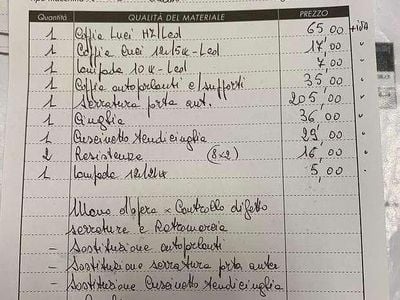 Quantità QUALITÀ DEL MATERIALE PREZZO
1 Coppia Luci H7/Led 65,00 + iva
1 Coppia Luci 12/5W-Led 17,00 "
1 Lampada 10W-Led 7,00 "
1 Coppia altoparlanti c/supporti 35,00 "
1 Serratura porta ant. 205,00 "
1 Cinghia 36,00 "
1 Cuscinetto tendicinghia 29,00 "
2 Resistenze (8x2) 16,00 "
1 Lampada 12/21W 5,00 "
Mano d'opera x Controllo difetto
serrature e Retromarcia
- Sostituzione altoparlanti
- Sostituzione serratura porta anter
- Sostituzione Cuscinetto tendicinghia